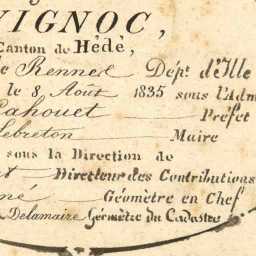 VIGNOC,
Canton de Hédé,
de Rennes Dépt. d'Ille
le 8 Août 1835 sous l'Adm
Cahouet Préfet
lebreton Maire
sous la Direction de
Directeur des Contributions
né Géomètre en Chef
Delamaire Géomètre du Cadastre